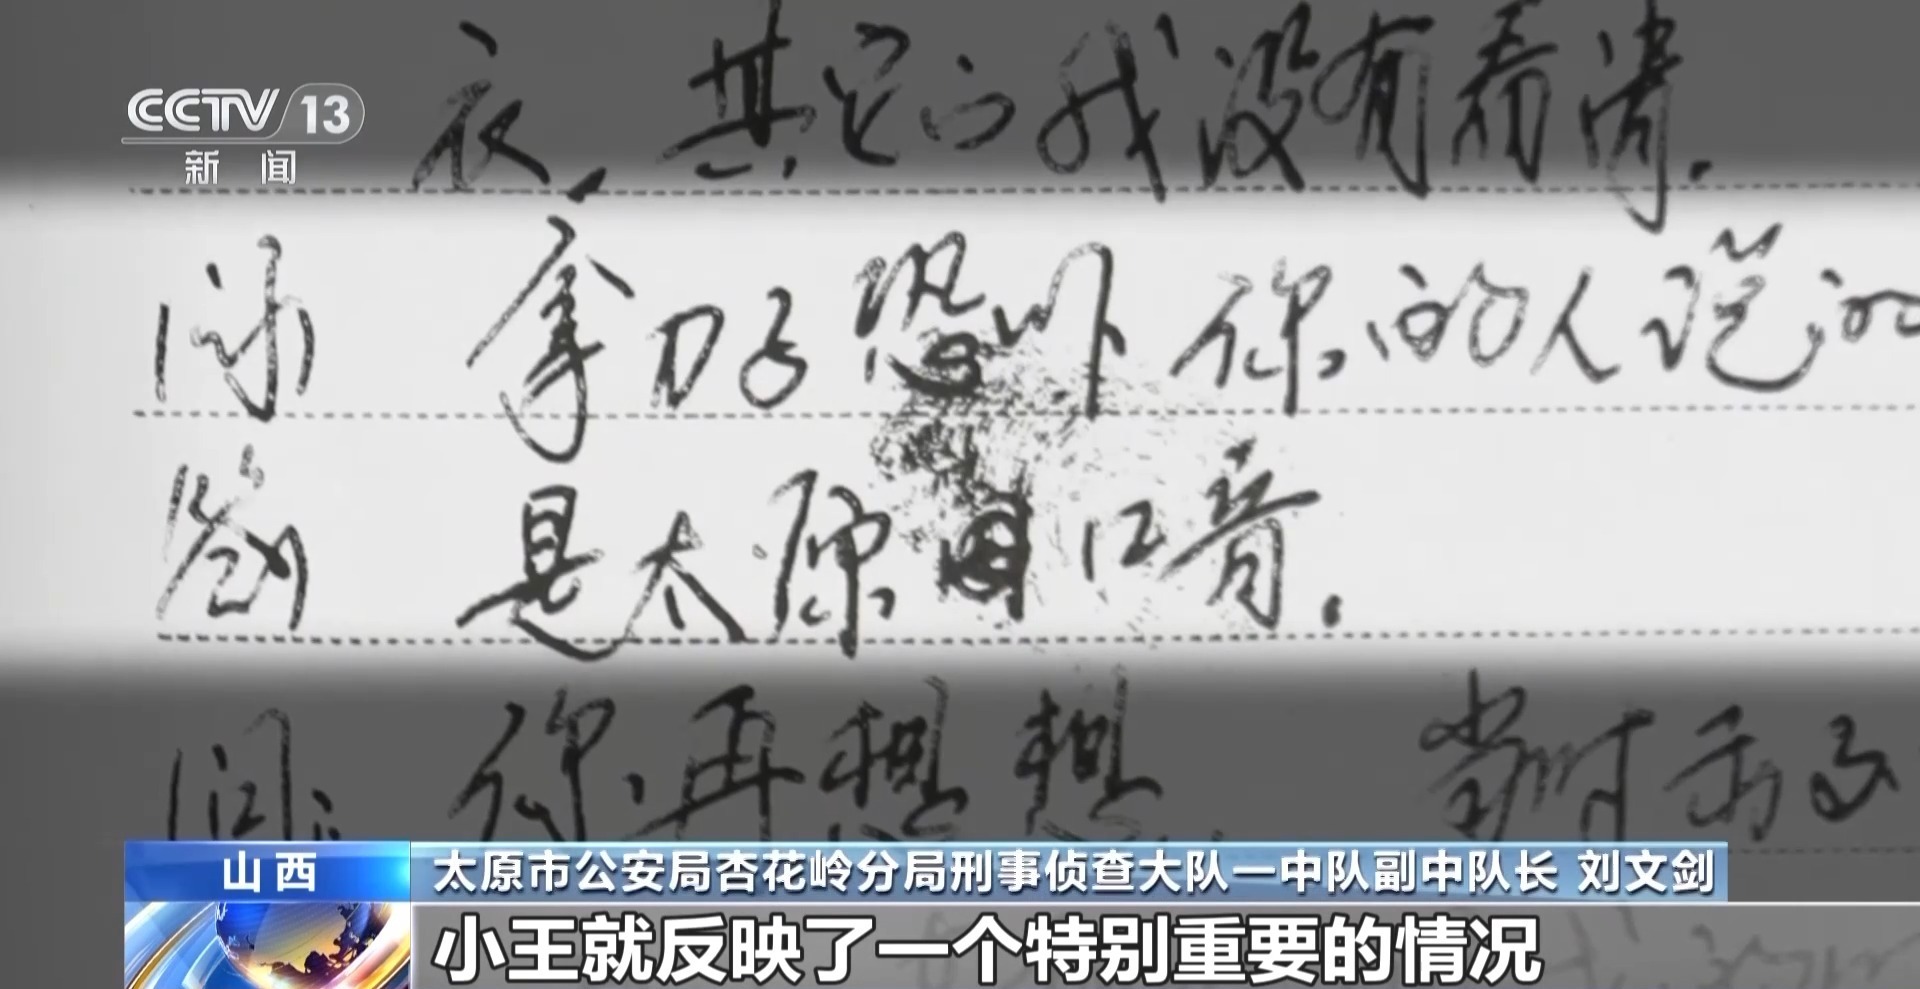 CCTV 13
新闻
衣,其它的我没有看清.
问 拿刀子恐吓你的人说的
答 是太原口音.
问: 你再想想, 当时
山西
太原市公安局杏花岭分局刑事侦查大队一中队副中队长 刘文剑
小王就反映了一个特别重要的情况